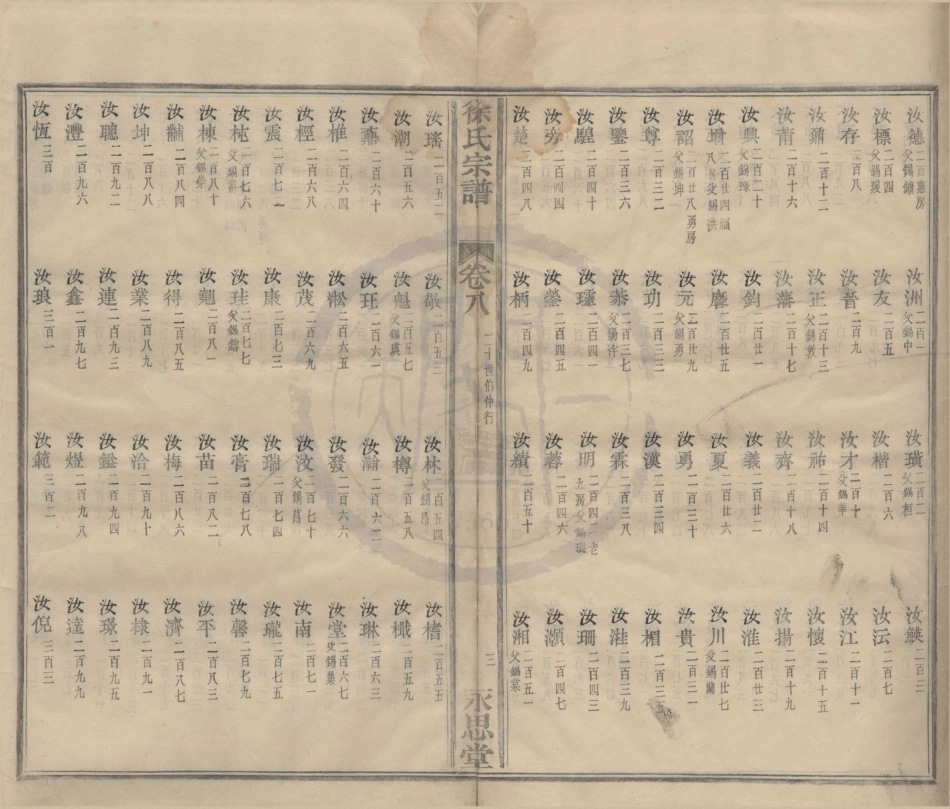 汝德 二百惠房父錫鏞 汝洲 二百一父錫中 汝璜 二百二父錫桓 汝 二百三
汝標 二百四父錫綬 汝友 二百五 汝楷 二百六 汝沄 二百七
汝存 二百八 汝晉 二百九 汝才 二百十父錫華 汝江 二百十一
汝鼐 二百十二 汝正 二百十三父錫 汝祐 二百十四 汝懷 二百十五
汝 二百十六 汝藩 二百十七 汝齊 二百十八 汝揚 二百十九
汝興 二百二十父錫 汝鈞 二百廿一 汝義 二百廿二 汝淮 二百廿三
汝增 二百廿四福八房父錫洪 汝 二百廿五 汝夏 二百廿六 汝川 二百廿七父錫蘭
汝詔 二百廿八勇房父錫坤 汝元 二百廿九父錫勇 汝勇 二百三十 汝貴 二百三一
汝尊 二百三二 汝功 二百三三 汝漢 二百三四 汝楣 二百三五
汝鑒 二百三六 汝泰 二百三七父錫祚 汝霖 二百三八 汝 二百三九
汝騜 二百四十 汝瓊 二百四一 汝明 二百四二老九房父錫瑞 汝珊 二百四三
汝芳 二百四四 汝瑩 二百四五 汝蓉 二百四六 汝灝 二百四七
汝楚 二百四八 汝柄 二百四九 汝績 二百五十 汝湘 二百五一父錫棠
徐氏宗譜 卷八 二十世伯仲行 三 永思堂
汝瑤 二百五二 汝敬 二百五三 汝林 二百五四父錫昌 汝榰 二百五五
汝潮 二百五六 汝魁 二百五七父錫璵 汝樽 二百五八 汝櫼 二百五九
汝燾 二百六十 汝玨 二百六一 汝瀚 二百六二 汝琳 二百六三
汝椎 二百六四 汝淞 二百六五 汝發 二百六六 汝堂 二百六七父錫集
汝樫 二百六八 汝茂 二百六九 汝汶 二百七十父錫昌 汝南 二百七一
汝震 二百七二 汝康 二百七三 汝瑞 二百七四 汝瓏 二百七五
汝 二百七六父錫 汝珪 二百七七父錫鏞 汝膏 二百七八 汝馨 二百七九
汝棟 二百八十父錫榮 汝翹 二百八一 汝苗 二百八二 汝平 二百八三
汝黼 二百八四 汝得 二百八五 汝梅 二百八六 汝濟 二百八七
汝坤 二百八八 汝業 二百八九 汝洽 二百九十 汝棣 二百九一
汝聰 二百九二 汝連 二百九三 汝鎰 二百九四 汝璟 二百九五
汝灃 二百九六 汝鑫 二百九七 汝煜 二百九八 汝達 二百九九
汝恆 三百 汝琅 三百一 汝範 三百二 汝倪 三百三